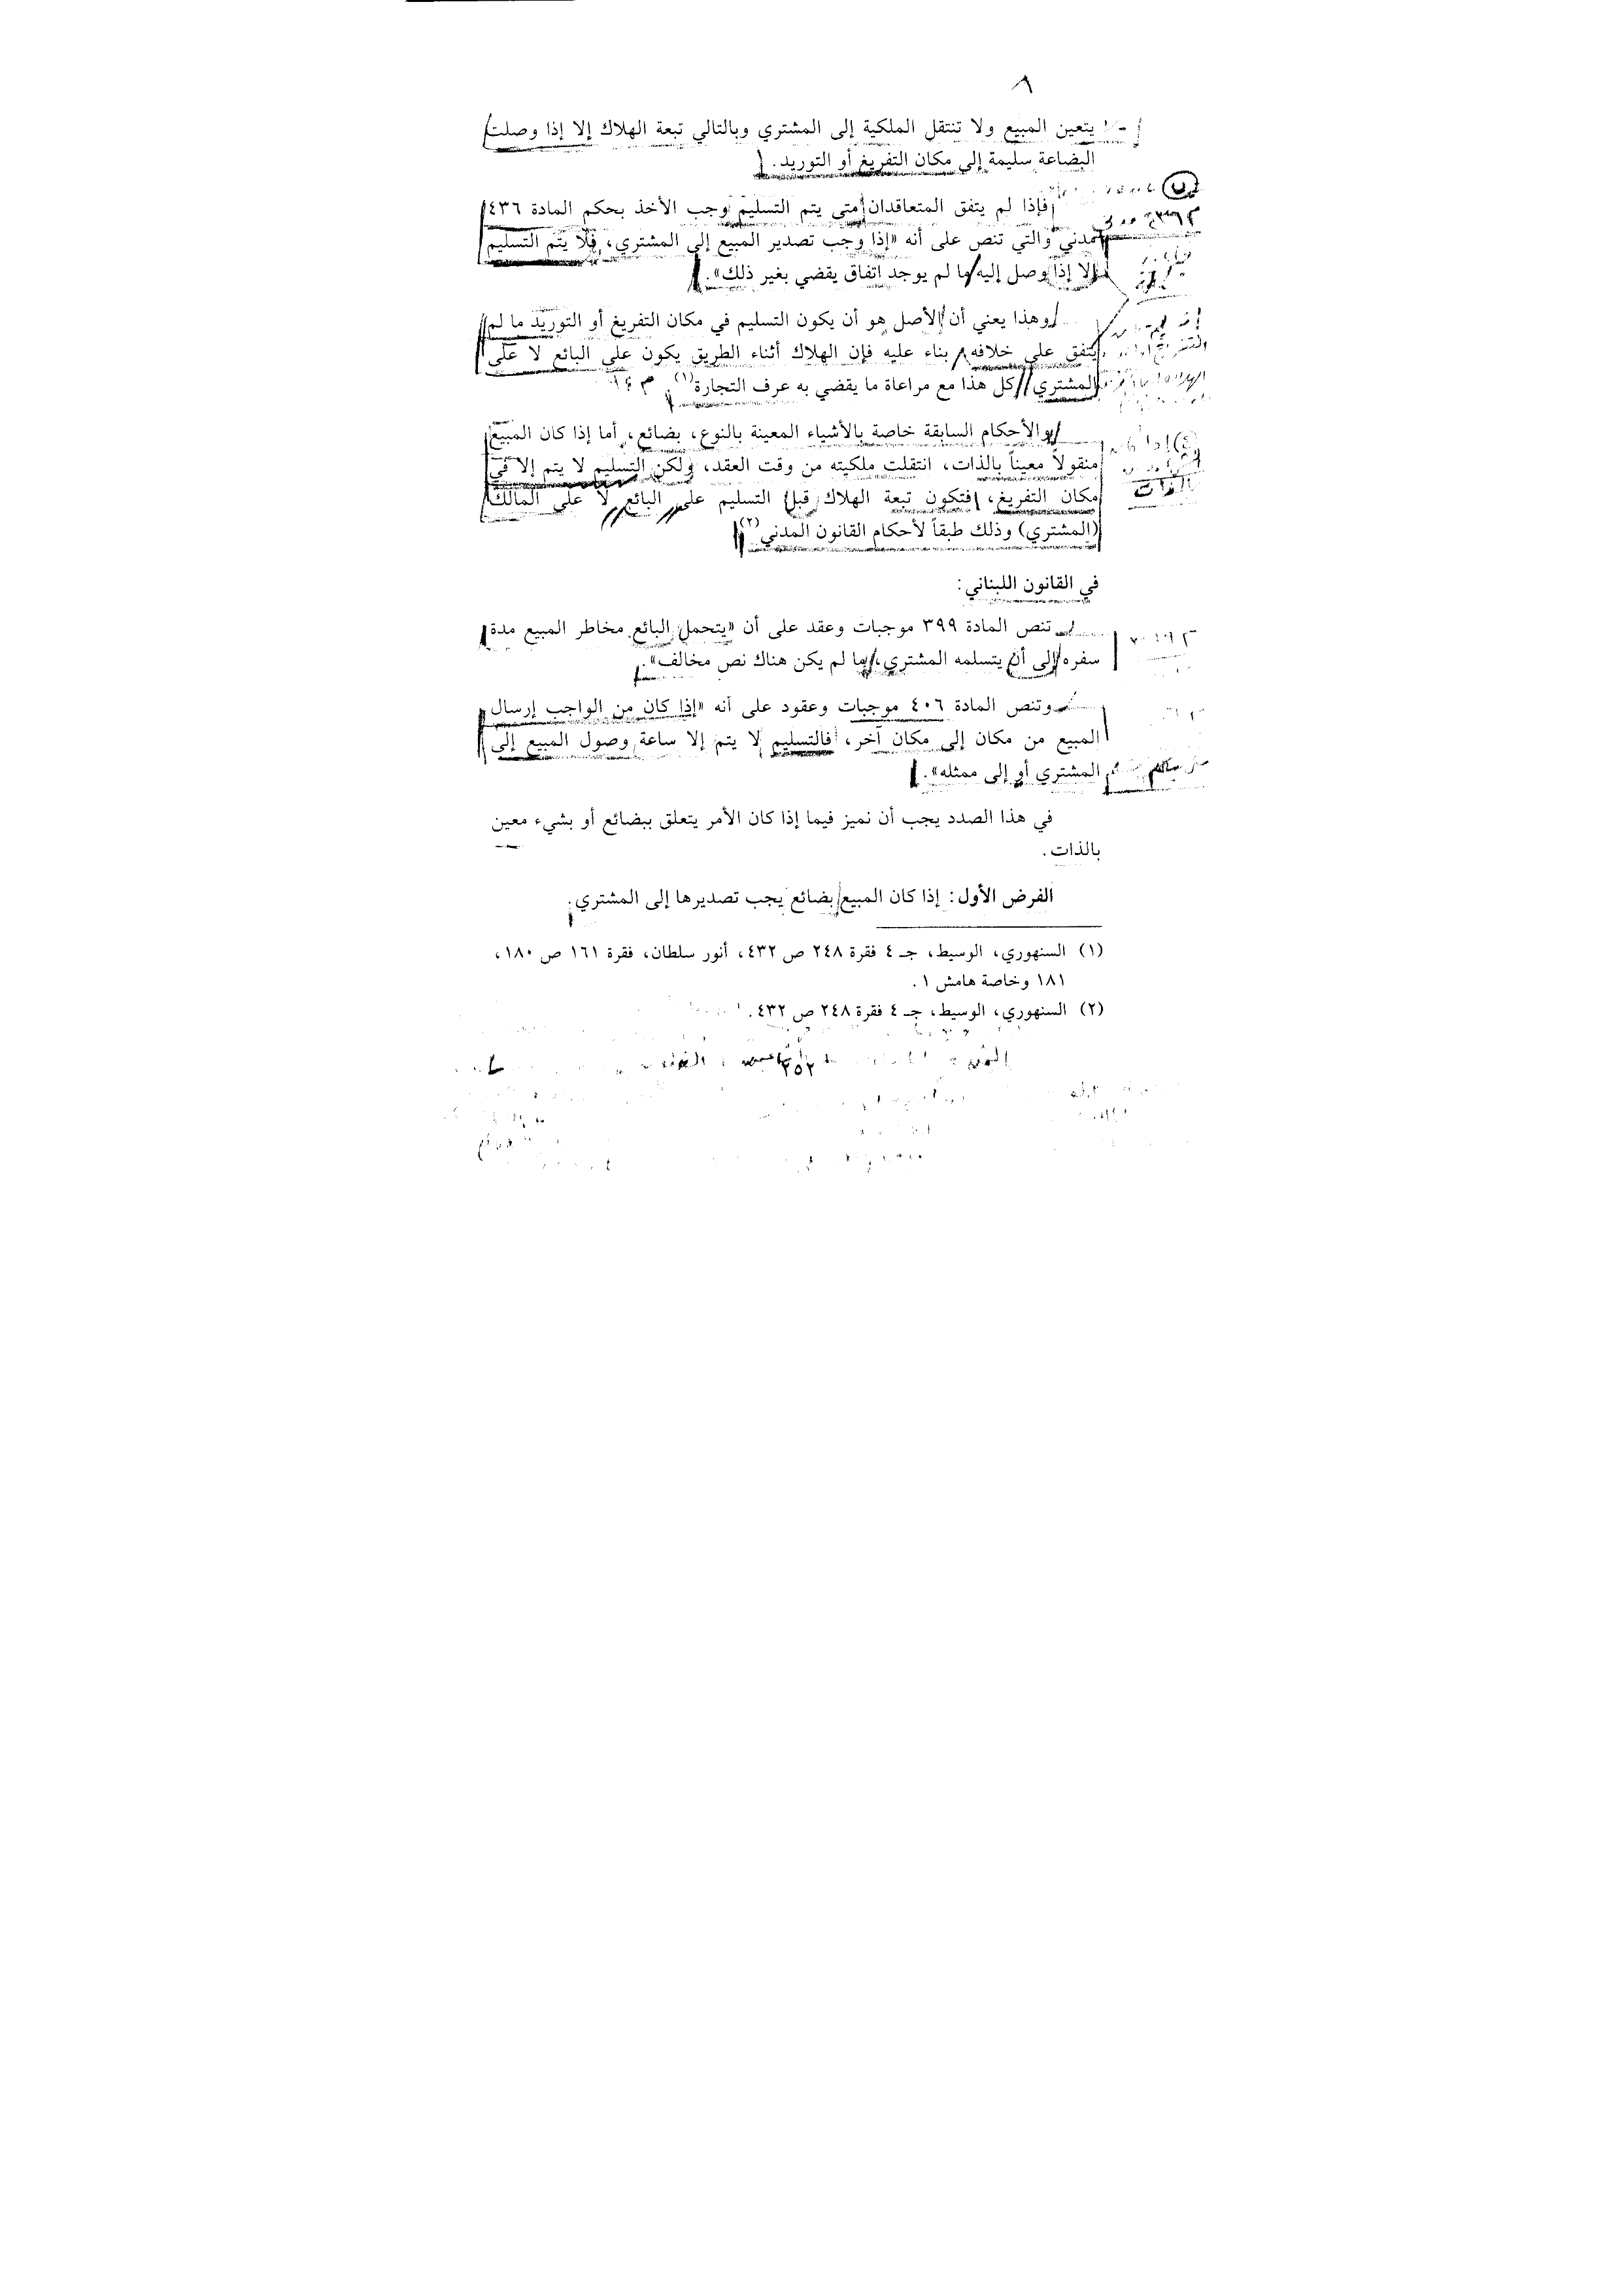 ٨
يتعين المبيع ولا تنتقل الملكية إلى المشتري وبالتالي تبعة الهلاك إلا إذا وصلت
البضاعة سليمة إلى مكان التفريغ أو التوريد.
فإذا لم يتفق المتعاقدان متى يتم التسليم وجب الأخذ بحكم المادة ٤٣٦
مدني والتي تنص على أنه «إذا وجب تصدير المبيع إلى المشتري، فلا يتم التسليم
إلا إذا وصل إليه ما لم يوجد اتفاق يقضي بغير ذلك».
وهذا يعني أن الأصل هو أن يكون التسليم في مكان التفريغ أو التوريد ما لم
يتفق على خلافه بناء عليه فإن الهلاك أثناء الطريق يكون على البائع لا على
المشتري كل هذا مع مراعاة ما يقضي به عرف التجارة(١).
والأحكام السابقة خاصة بالأشياء المعينة بالنوع، بضائع، أما إذا كان المبيع
منقولاً معيناً بالذات، انتقلت ملكيته من وقت العقد، ولكن التسليم لا يتم إلا في
مكان التفريغ، فتكون تبعة الهلاك قبل التسليم على البائع لا على المالك
بالذات
(المشتري) وذلك طبقاً لأحكام القانون المدني(٢)
في القانون اللبناني:
تنص المادة ٣٩٩ موجبات وعقد على أن «يتحمل البائع مخاطر المبيع مدة
سفره إلى أن يتسلمه المشتري، ما لم يكن هناك نص مخالف».
وتنص المادة ٤٠٦ موجبات وعقود على أنه «إذا كان من الواجب إرسال
المبيع من مكان إلى مكان آخر، فالتسليم لا يتم إلا ساعة وصول المبيع إلى
المشتري أو إلى ممثله».
في هذا الصدد يجب أن نميز فيما إذا كان الأمر يتعلق ببضائع أو بشيء معين
بالذات.
الفرض الأول: إذا كان المبيع بضائع يجب تصديرها إلى المشتري.
(١) السنهوري، الوسيط، جـ ٤ فقرة ٢٤٨ ص ٤٣٢، أنور سلطان، فقرة ١٦١ ص ١٨٠،
١٨١ وخاصة هامش ١.
(٢) السنهوري، الوسيط، جـ ٤ فقرة ٢٤٨ ص ٤٣٢.
٢٥٢